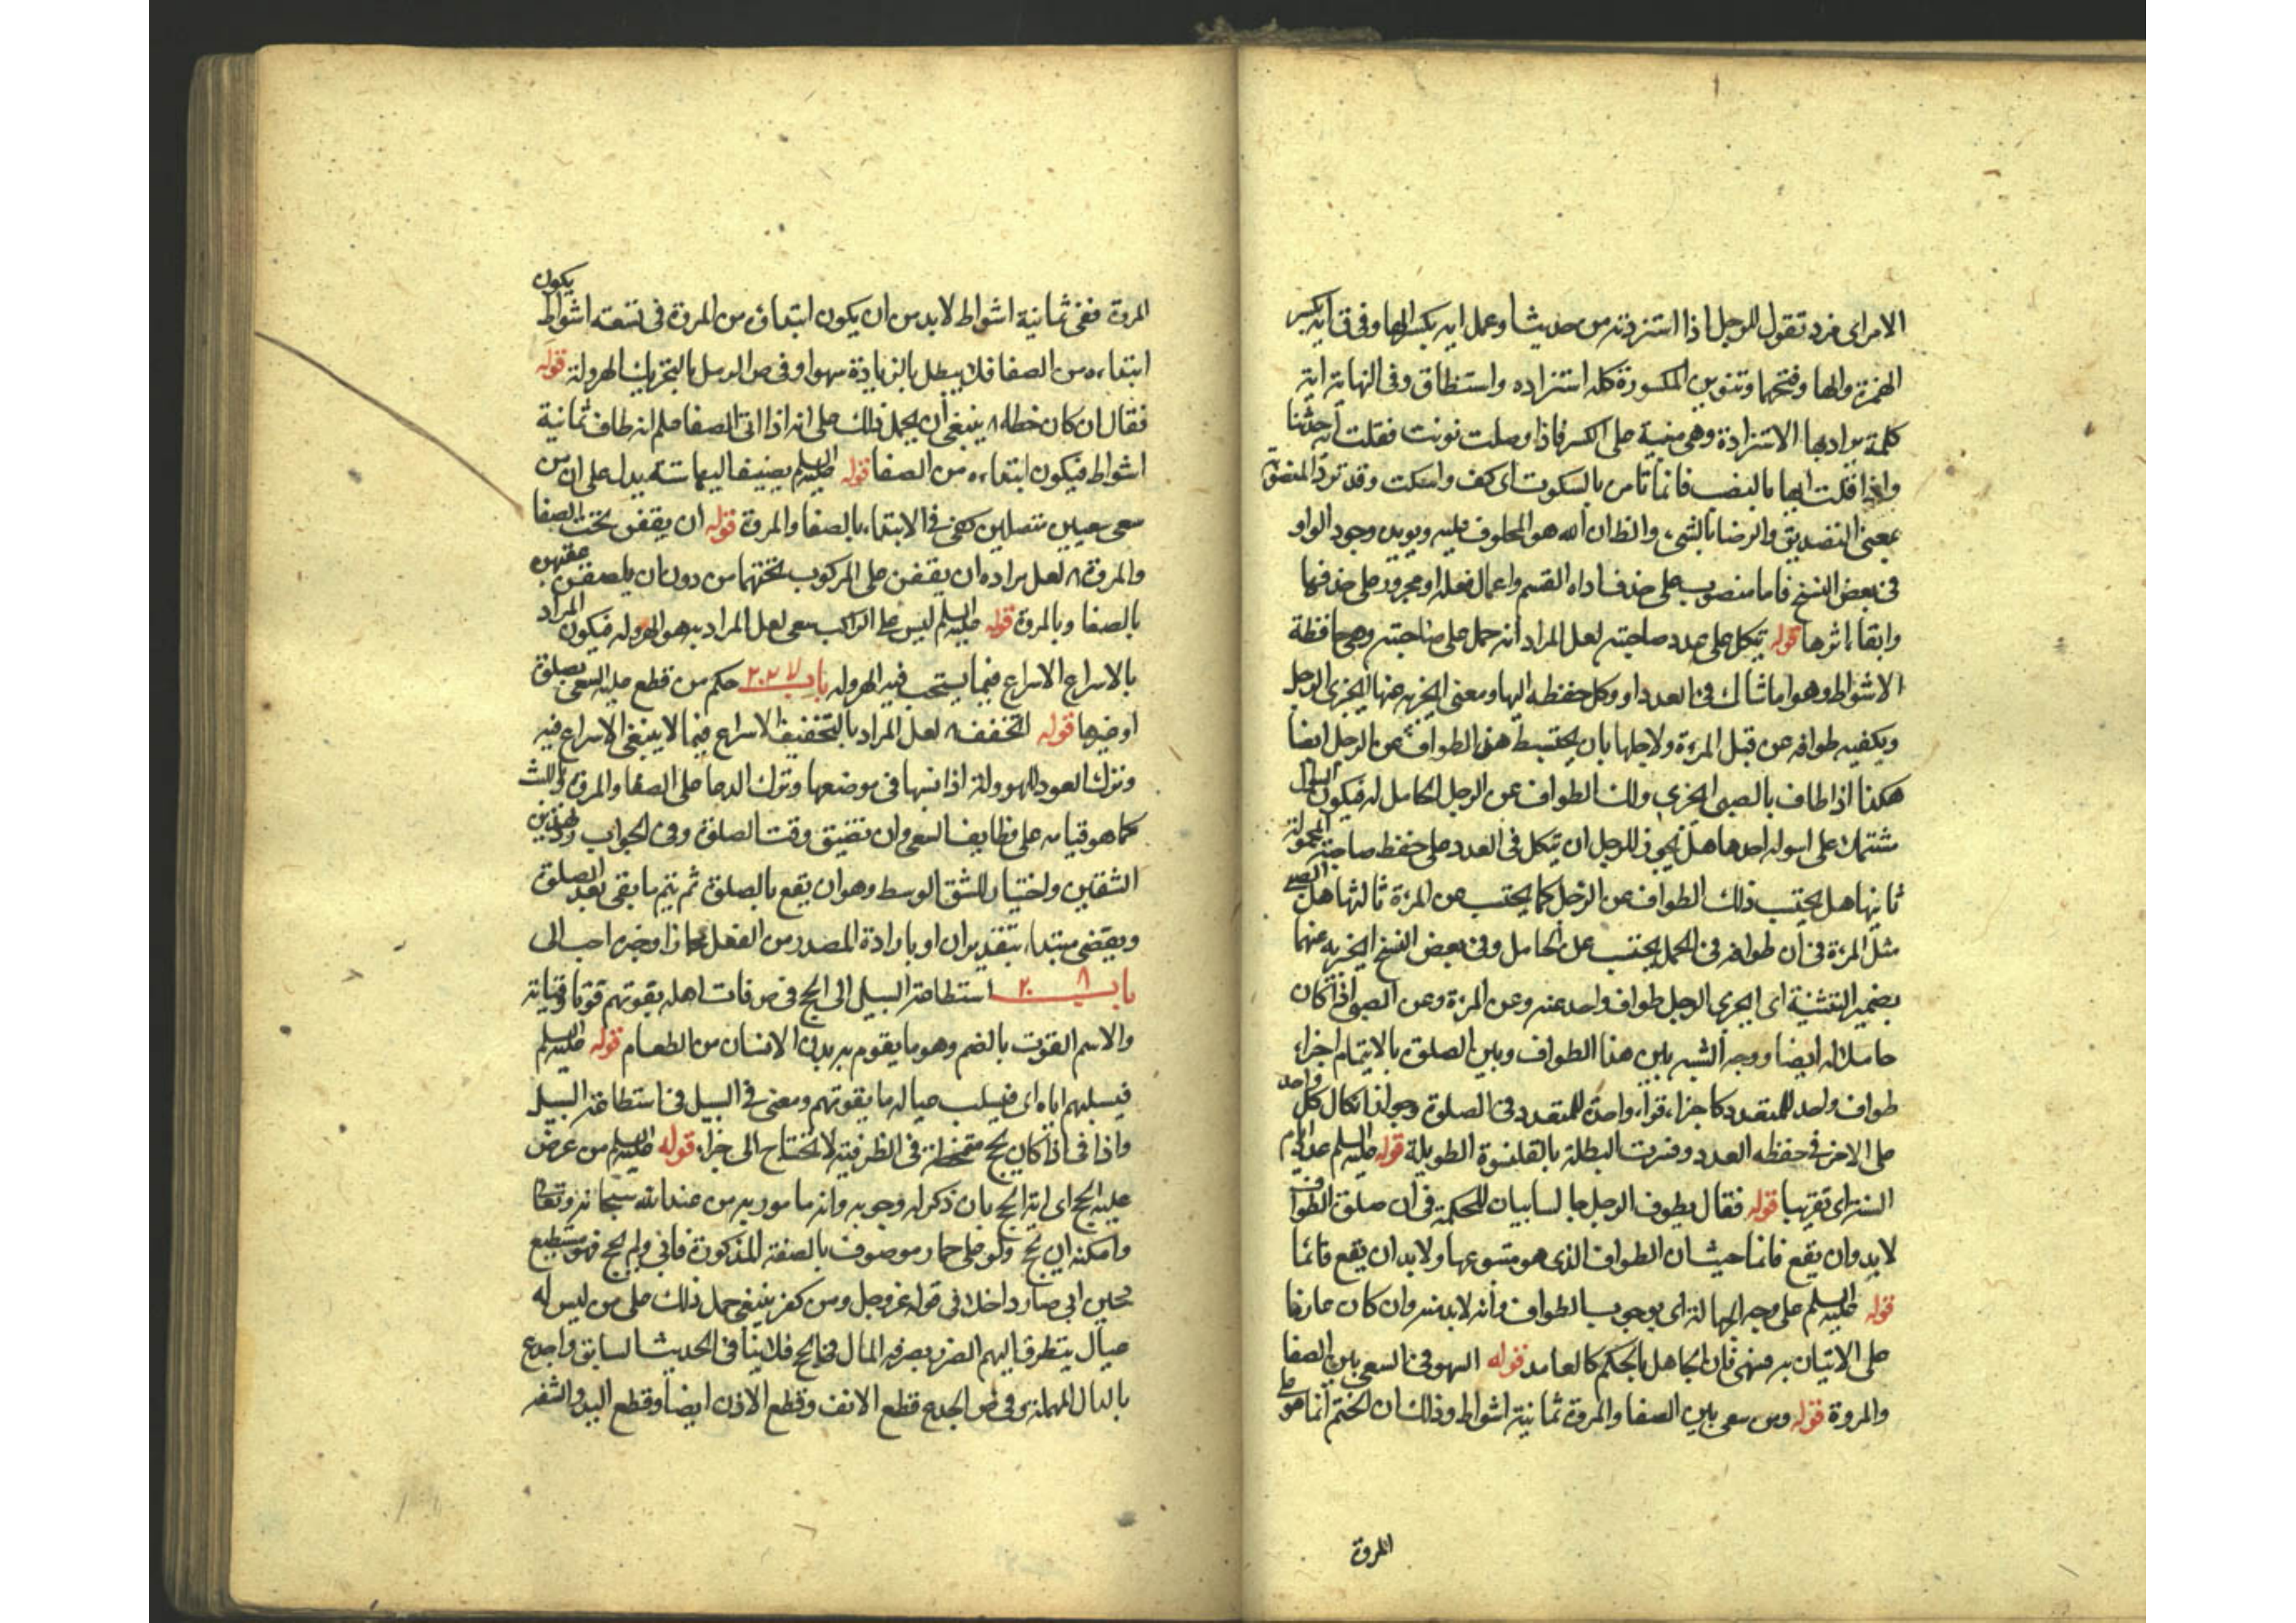 الامر اى فرد تقول للرجل اذا استزدته من حديث او عمل ايه بكسر الهاء وفى ق ايه بكسر
الهمزة والهاء وفتحها وتنوين المكسورة كلمة استزاده واستنطاق وفى النهاية ايه
كلمة يراد بها الاستزادة وهى مبنية على الكسر فاذا وصلت نونت فقلت ايه حدثنا
واذا قلت ايها بالنصب فانما تامر بالسكوت اى كف واسكت وقد ترد المنصوبة
بمعنى التصديق والرضا بالشى والظ ان الله هو المحلوف عليه ويويده وجود الواو
فى بعض النسخ فاما منصوب على حذف اداه القسم واعمال فعله او مجرور على حذفها
وابقاء اثرها قوله يتكل على عدد صاحبته لعل المراد انه حمل على صاحبته وهى حافظة
الاشواط وهو اما شاك فى العدد او وكل حفظه اليها ومعنى يجزيه عنها يجزى الرجل
ويكفيه طوافه عن قبل المرءة ولاجلها بان يحتسب هذا الطواف عن الرجل ايضا
هكذا اذا طاف بالصبى يجزى ذلك الطواف عن الرجل الحامل له فيكون السؤال
مشتملا على اسوله احدها هل يجوز للرجل ان يتكل فى العدد على حفظ صاحبته المحمولة
ثانيها هل يحتسب ذلك الطواف عن الرجل كما يحتسب عن المرءة ثالثها هل الصبى
مثل المرءة فى ان طوافه فى الحمل يحتسب عن الحامل وفى بعض النسخ ايجزيه عنهما
بضمير التثنية اى ايجزى الرجل طواف واحد عنه وعن المرءة وعن الصبى اذا كان
حاملا له ايضا ووجه الشبه بين هذا الطواف وبين الصلوة بالايتمام اجزاء
طواف واحد للمتعدد كاجزاء قراءة واحدة للمتعدد فى الصلوة وجواز اتكال كل واحد
على الاخر فى حفظه العدد وفسرت البطلة بالقلنسوة الطويلة قوله عليه السلم عدد ايام
السنة اى تقريبا قوله فقال يطوف الرجل جالسا بيان للحكمة فى ان صلوة الطواف
لابد وان يقع قائما حيث ان الطواف الذى هو متبوعها ولابد ان يقع قائما
قوله عليه السلم على وجه الجهالة اى بوجوب الطواف وانه لابد منه وان كان عارفا
على الاتيان به فنهى فان الجاهل بالحكم كالعامد قوله السهو فى السعى بين الصفا
والمروة قوله ومن سعى بين الصفا والمروة ثمانية اشواط وذلك ان الختم انما هو على
المروة
المروة ففى ثمانية اشواط لابد من ان يكون ابتداؤه من المروة فى تسعة اشواط يكون
ابتداءه من الصفا فلا يبطل بالزيادة سهوا وفى ص الرمل بالتحريك الهرولة قوله
فقال ان كان خطاء ينبغى ان يحمل ذلك على انه اذا اتى الصفا علم انه طاف ثمانية
اشواط فيكون ابتداءه من الصفا قوله عليه السلم يضيف اليها ستة يدل على ان من
سعى سعيين متصلين كفى فى الابتداء بالصفا والمروة قوله ان يقفن تحت الصفا
والمروة لعل مراده ان يقفن على المركوب تحتهما من دون ان يلصقن عقبهن
بالصفا وبالمروة قوله عليه السلم ليس على الراكب سعى لعل المراد به هو الهرولة فيكون المراد
بالاسراع الاسراع فيما يستحب فيه الهرولة باب ٢٠٧ حكم من قطع عليه السعى بصلوة
او غيرها قوله التخفف لعل المراد بالتخفيف الاسراع فيما لا ينبغى الاسراع فيه
وترك العود للهرولة اذا نسيها فى موضعها وترك الدعا على الصفا والمروة واللبث
كما هو قيامه على وظايف السعى وان تضيق وقت الصلوة وفى الجواب رد هذين
الشقين واختيار للشق الوسط وهو ان يقع بالصلوة ثم يتم ما بقى بعد الصلوة
ويقضى مبتداء بتقدير ان او بارادة المصدر من الفعل مجازا وخبره احب الى
باب ٢٠٨ استطاعة السبيل الى الحج فى ص قات اهله يقوتهم قوتا وقياتة
والاسم القوت بالضم وهو ما يقوم به بدن الانسان من الطعام قوله عليه السلم
فيسلبهم اياه اى فيسلب عياله ما يقوتهم ومعنى فى السبيل فى استطاعة السبيل
واذا فى اذا كان يحج متمحضة فى الظرفية لا تحتاج الى جزاء قوله عليه السلم من عرض
عليه الحج اى اية الحج بان ذكر له وجوبه وانه مامور به من عند الله سبحانه وتعالى
وامكنه ان يحج ولو على حمار موصوف بالصفة المذكورة فابى ولم يحج فهو مستطيع
فحين ابى صار داخلا فى قوله عز وجل ومن كفر ينبغى حمل ذلك على من ليس له
عيال يتطرق اليهم الضرر بصرفه المال فى الحج فلا ينافى الحديث السابق واجدع
بالدال المهملة وفى ص الجدع قطع الانف وقطع الاذن ايضا وقطع اليد والشفه